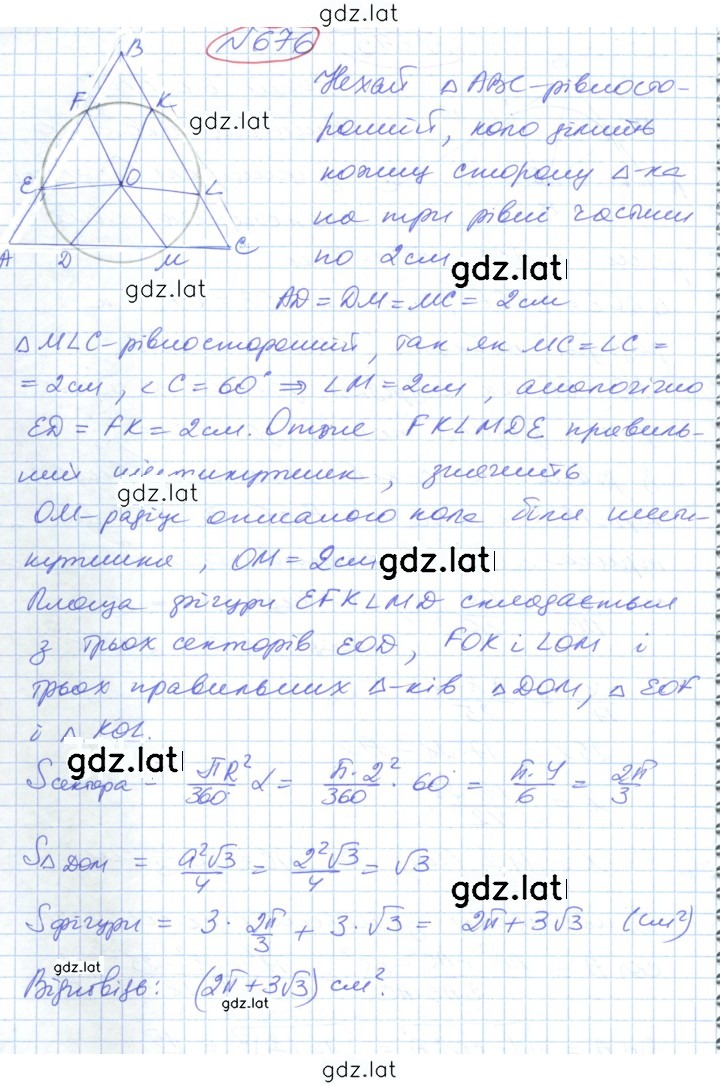 gdz.lat
№676
B
F K
gdz.lat
E O L
A D M C
gdz.lat
Нехай △ABC-рівносто-
ронній, коло ділить
кожну сторону △-ка
на три рівні частини
по 2см
gdz.lat
AD = DM = MC = 2см
△MLC-рівносторонній, так як MC = LC =
= 2см, ∠C = 60° ⇒ LM = 2см, аналогічно
ED = FK = 2см. Отже FKLMDE правиль-
ний шестикутник, значить
gdz.lat
OM-радіус описаного кола біля шести-
кутника, OM = 2см
gdz.lat
Площа фігури EFKLMD складається
з трьох секторів EOD, FOK і LOM і
трьох правильних △-ків △DOM, △EOF
і △ KOL.
gdz.lat
Sсектора = πR²/360° α = π·2²/360 · 60° = π·4/6 = 2π/3
S△DOM = a²√3/4 = 2²√3/4 = √3
gdz.lat
Sфігури = 3 · 2π/3 + 3·√3 = 2π+3√3 (см²)
gdz.lat
Відповідь: (2π+3√3) см².
gdz.lat
gdz.lat